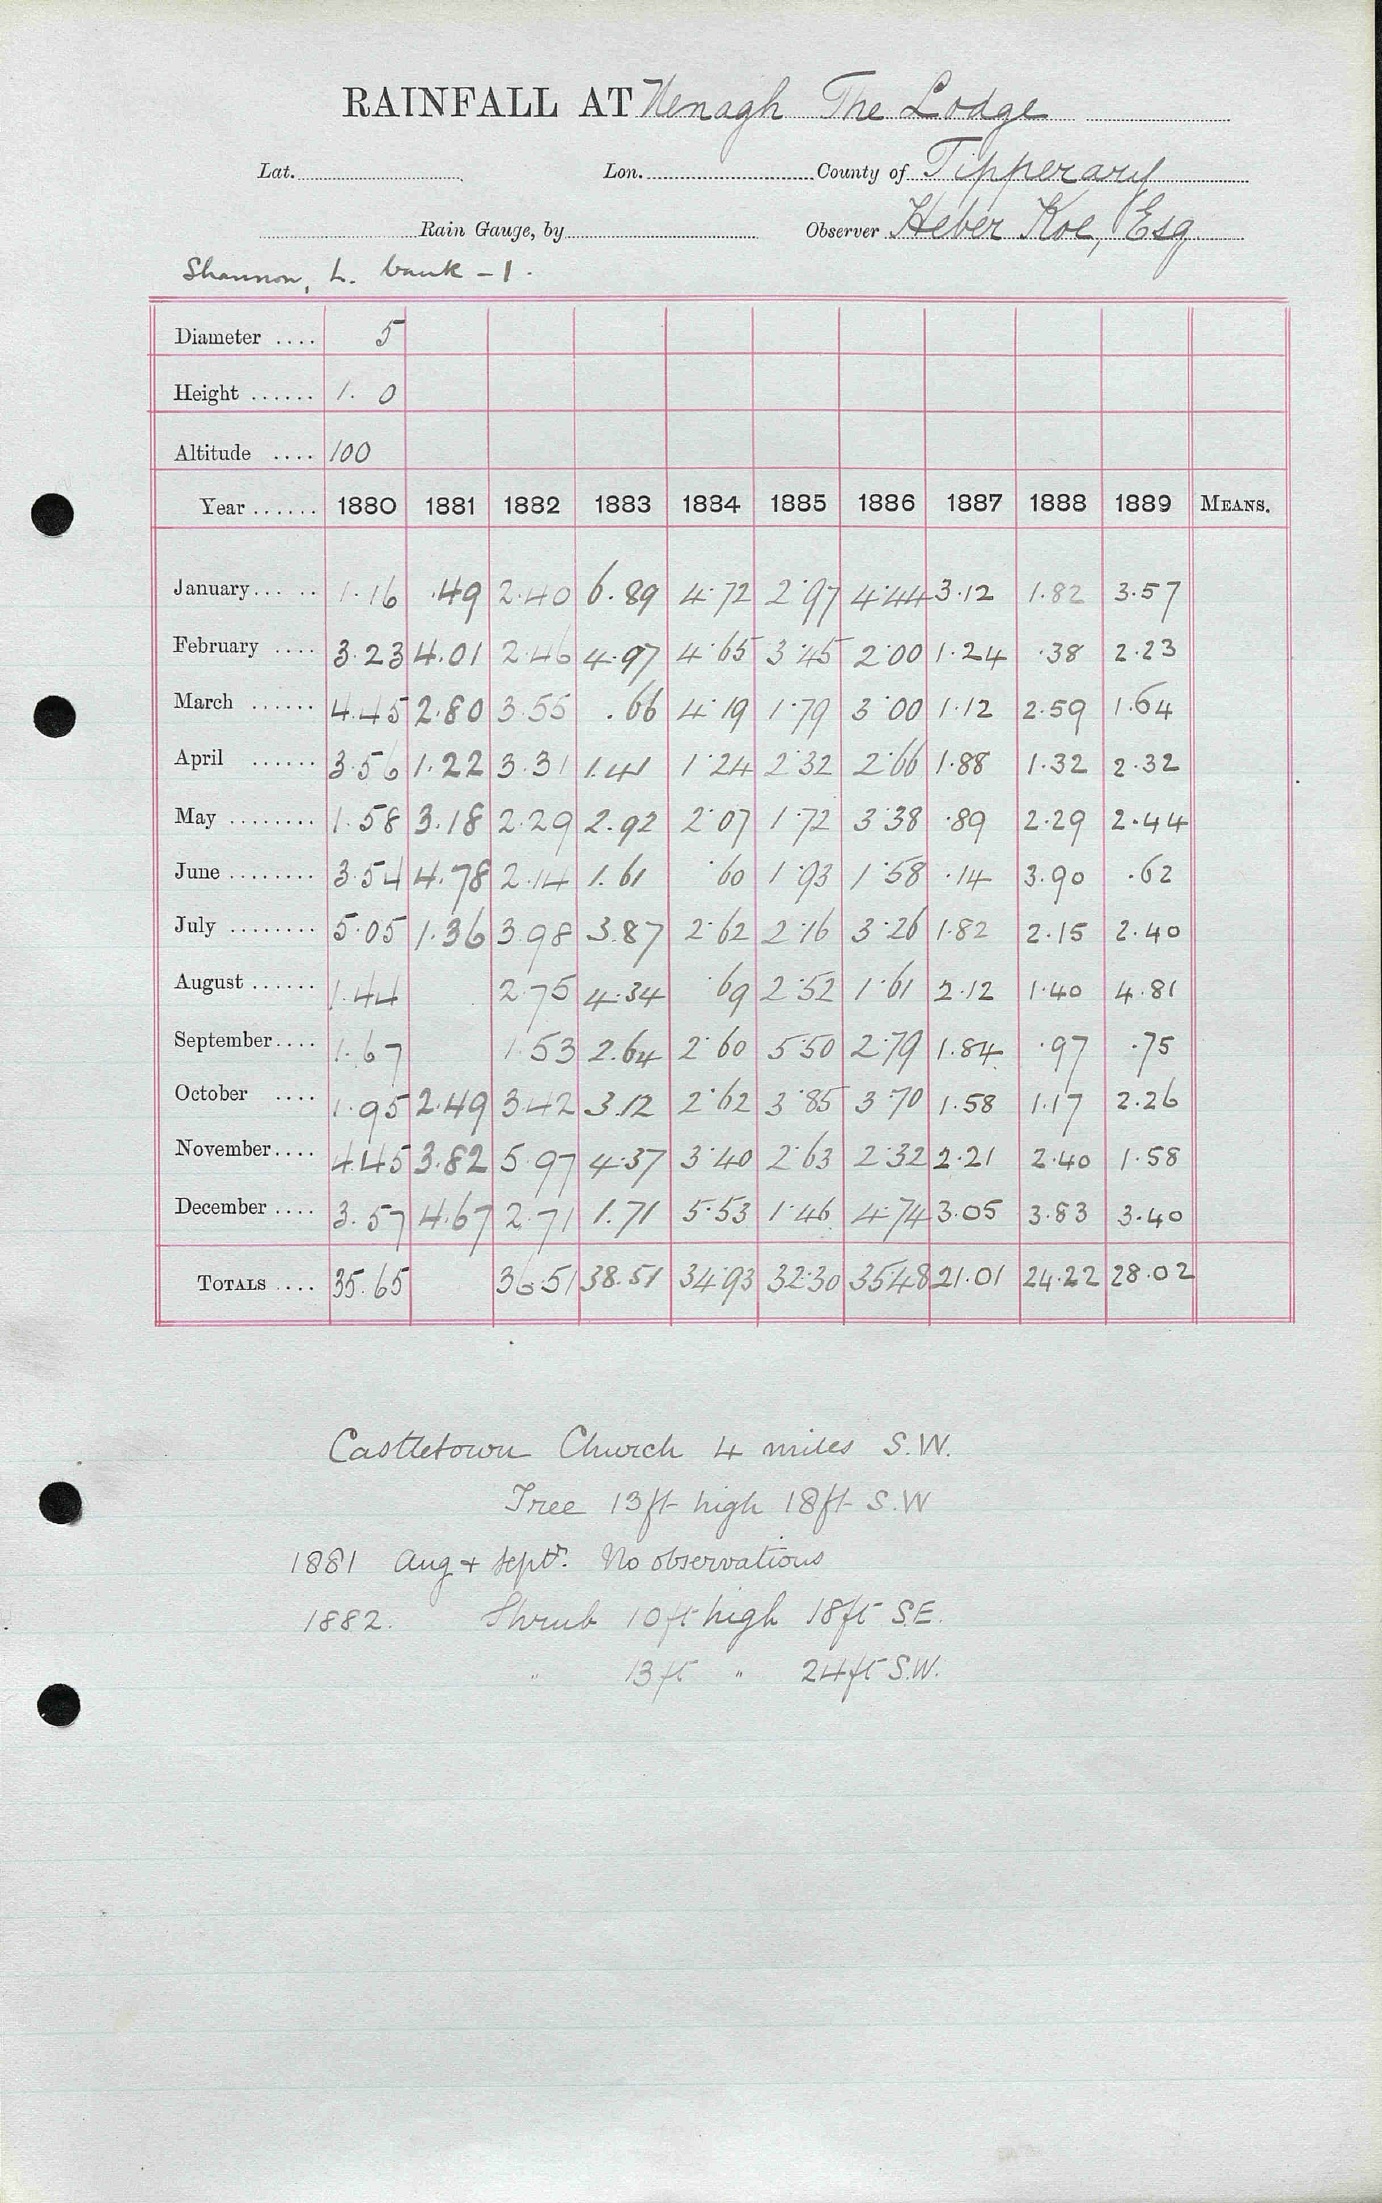 RAINFALL AT Nenagh The Lodge
Lat. Lon. County of Tipperary
Rain Gauge, by Observer Heber Koe, Esq
Shannon, L. bank - 1.
Diameter .... 5
Height ...... 1. 0
Altitude .... 100
Year ...... 1880 1881 1882 1883 1884 1885 1886 1887 1888 1889 MEANS.
January... .. 1.16 .49 2.40 6.89 4.72 2.97 4.44 3.12 1.82 3.57
February .... 3.23 4.01 2.46 4.97 4.65 3.45 2.00 1.24 .38 2.23
March ...... 4.45 2.80 3.55 .66 4.19 1.79 3.00 1.12 2.59 1.64
April ...... 3.56 1.22 3.31 1.41 1.24 2.32 2.66 1.88 1.32 2.32
May ........ 1.58 3.18 2.29 2.92 2.07 1.72 3.38 .89 2.29 2.44
June ........ 3.54 4.78 2.14 1.61 .60 1.93 1.58 .14 3.90 .62
July ........ 5.05 1.36 3.98 3.87 2.62 2.16 3.26 1.82 2.15 2.40
August ...... 1.44 2.75 4.34 .69 2.52 1.61 2.12 1.40 4.81
September.... 1.67 1.53 2.64 2.60 5.50 2.79 1.84 .97 .75
October .... 1.95 2.49 3.42 3.12 2.62 3.85 3.70 1.58 1.17 2.26
November.... 4.45 3.82 5.97 4.37 3.40 2.63 2.32 2.21 2.40 1.58
December .... 3.57 4.67 2.71 1.71 5.53 1.46 4.74 3.05 3.83 3.40
TOTALS .... 35.65 36.51 38.51 34.93 32.30 35.48 21.01 24.22 28.02
Castletown Church 4 miles S.W.
Tree 13ft high 18ft S.W
1881 Aug + Septr. No observations
1882. Shrub 10ft high 18ft S.E.
" 13ft " 24ft S.W.